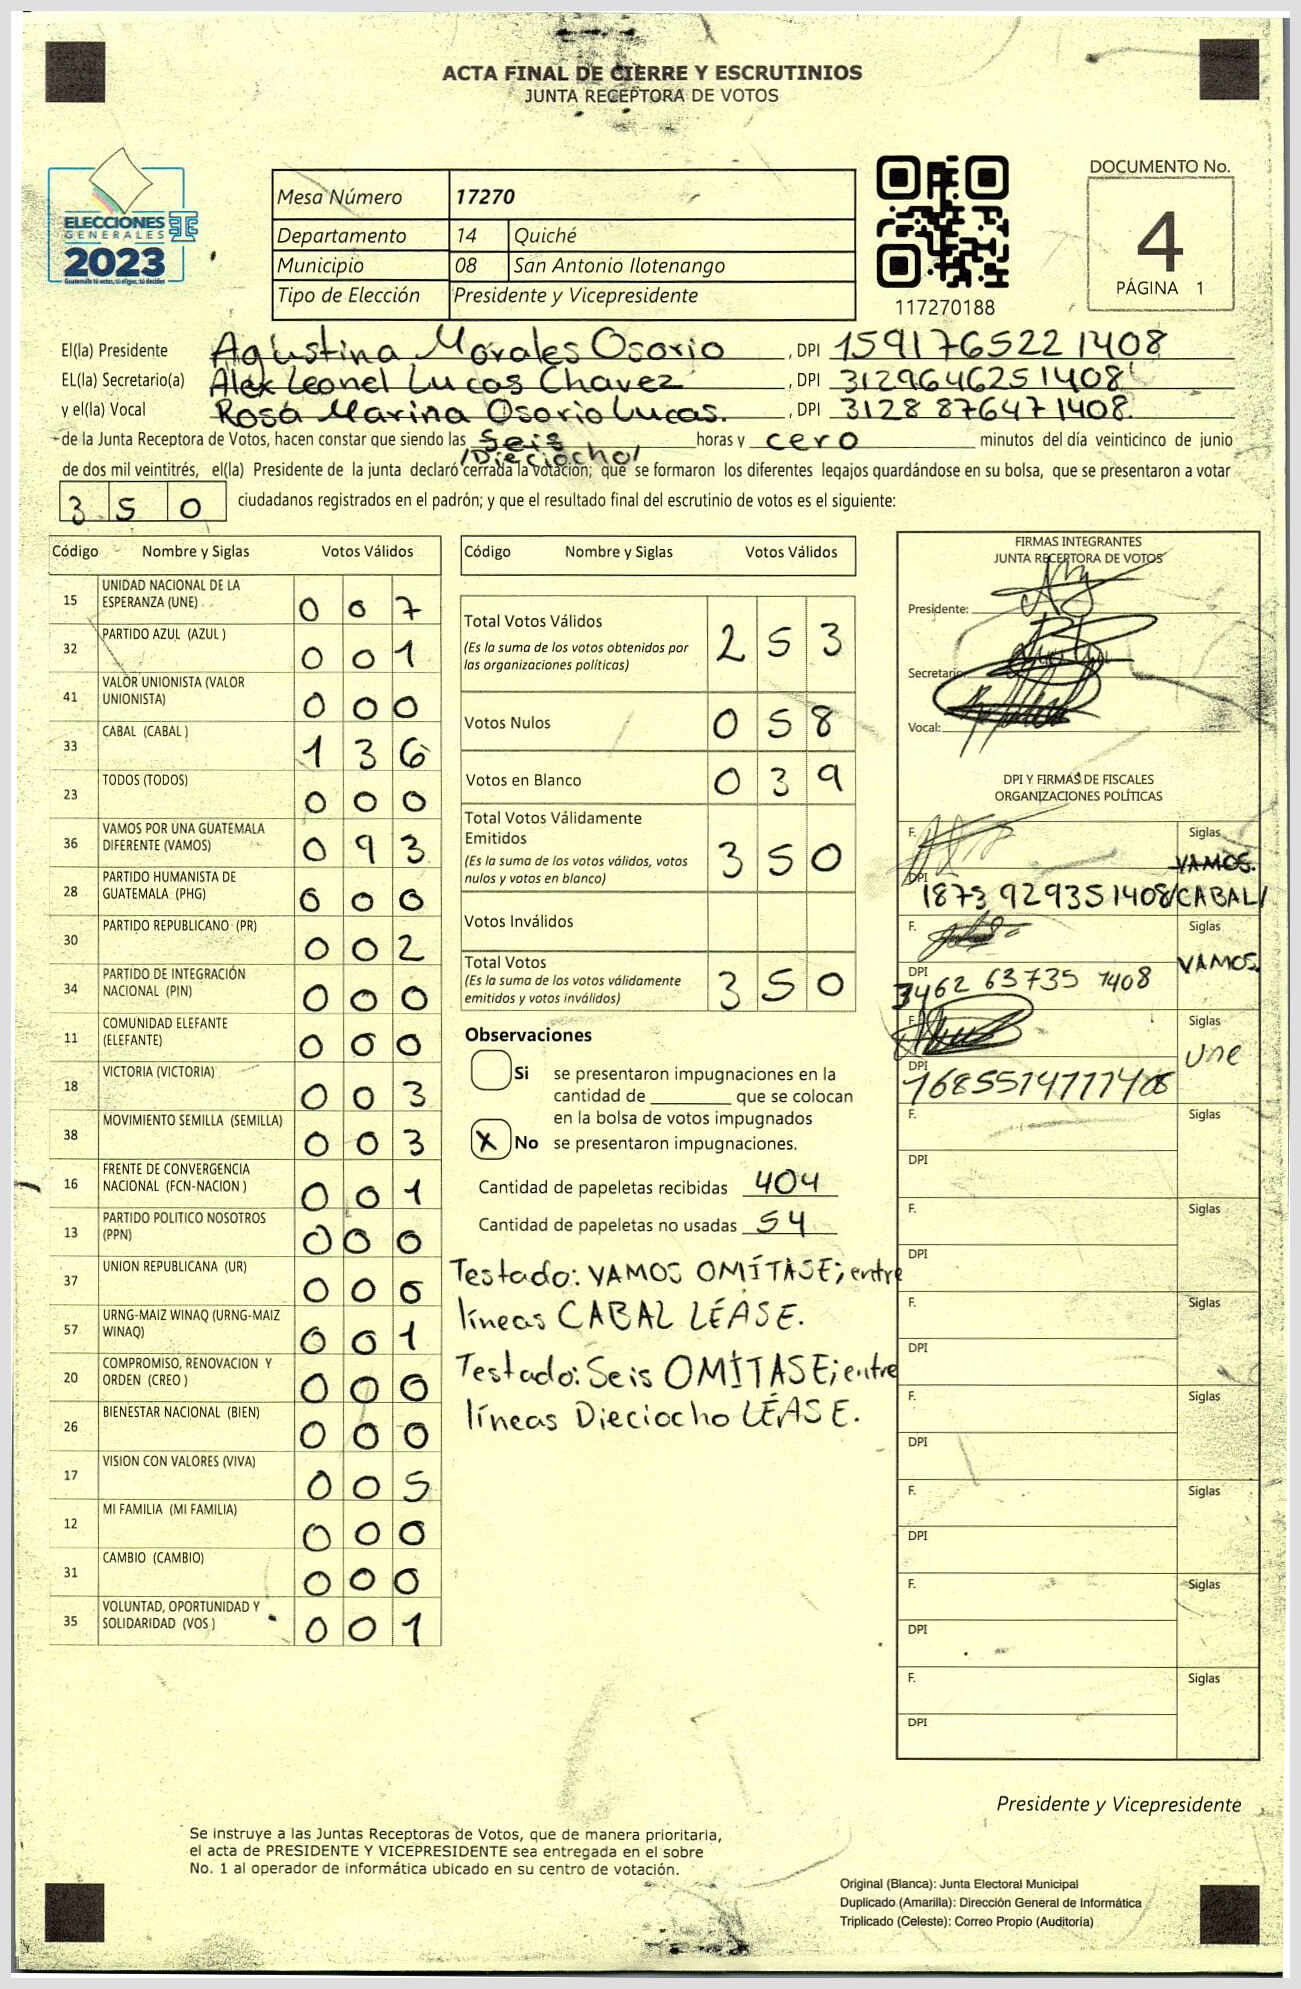 ACTA FINAL DE CIERRE Y ESCRUTINIOS
JUNTA RECEPTORA DE VOTOS
ELECCIONES
GENERALES
2023
Guatemala tú votas, tú eliges, tú decides
Mesa Número 17270
Departamento 14 Quiché
Municipio 08 San Antonio Ilotenango
Tipo de Elección Presidente y Vicepresidente
117270188
DOCUMENTO No.
4
PÁGINA 1
El(la) Presidente Agustina Morales Osorio, DPI 1591765221408
EL(la) Secretario(a) Alex Leonel Lucas Chavez, DPI 3129646251408
y el(la) Vocal Rosa Marina Osorio Lucas., DPI 3128876471408.
de la Junta Receptora de Votos, hacen constar que siendo las Seis horas y cero minutos del día veinticinco de junio
/Dieciocho/
de dos mil veintitrés, el(la) Presidente de la junta declaró cerrada la votación; que se formaron los diferentes legajos quardándose en su bolsa, que se presentaron a votar
350 ciudadanos registrados en el padrón; y que el resultado final del escrutinio de votos es el siguiente:
Código Nombre y Siglas Votos Válidos
15 UNIDAD NACIONAL DE LA ESPERANZA (UNE) 007
32 PARTIDO AZUL (AZUL ) 001
41 VALOR UNIONISTA (VALOR UNIONISTA) 000
33 CABAL (CABAL ) 136
23 TODOS (TODOS) 000
36 VAMOS POR UNA GUATEMALA DIFERENTE (VAMOS) 093
28 PARTIDO HUMANISTA DE GUATEMALA (PHG) 000
30 PARTIDO REPUBLICANO (PR) 002
34 PARTIDO DE INTEGRACIÓN NACIONAL (PIN) 000
11 COMUNIDAD ELEFANTE (ELEFANTE) 000
18 VICTORIA (VICTORIA) 003
38 MOVIMIENTO SEMILLA (SEMILLA) 003
16 FRENTE DE CONVERGENCIA NACIONAL (FCN-NACION ) 001
13 PARTIDO POLITICO NOSOTROS (PPN) 000
37 UNION REPUBLICANA (UR) 00
57 URNG-MAIZ WINAQ (URNG-MAIZ WINAQ) 001
20 COMPROMISO, RENOVACION Y ORDEN (CREO ) 000
26 BIENESTAR NACIONAL (BIEN) 000
17 VISION CON VALORES (VIVA) 005
12 MI FAMILIA (MI FAMILIA) 000
31 CAMBIO (CAMBIO) 000
35 VOLUNTAD, OPORTUNIDAD Y SOLIDARIDAD (VOS ) 001
Código Nombre y Siglas Votos Válidos
Total Votos Válidos 253
(Es la suma de los votos obtenidos por
las organizaciones políticas)
Votos Nulos 058
Votos en Blanco 039
Total Votos Válidamente
Emitidos 350
(Es la suma de los votos válidos, votos
nulos y votos en blanco)
Votos Inválidos
Total Votos 350
(Es la suma de los votos válidamente
emitidos y votos inválidos)
Observaciones
Si se presentaron impugnaciones en la
cantidad de ________ que se colocan
en la bolsa de votos impugnados
X No se presentaron impugnaciones.
Cantidad de papeletas recibidas 404
Cantidad de papeletas no usadas 54
Testado: VAMOS OMÍTASE; entre
líneas CABAL LÉASE.
Testado: Seis OMÍTASE; entre
líneas Dieciocho LÉASE.
FIRMAS INTEGRANTES
JUNTA RECEPTORA DE VOTOS
Presidente:
Secretario:
Vocal:
DPI Y FIRMAS DE FISCALES
ORGANIZACIONES POLÍTICAS
F. Siglas
VAMOS.
DPI
1873 929351408 /CABAL/
F. Siglas
VAMOS.
DPI
3462 63735 1408
F. Siglas
une
DPI
F. Siglas
DPI
F. Siglas
DPI
F. Siglas
DPI
F. Siglas
DPI
F. Siglas
DPI
F. Siglas
DPI
F. Siglas
DPI
Presidente y Vicepresidente
Se instruye a las Juntas Receptoras de Votos, que de manera prioritaria,
el acta de PRESIDENTE Y VICEPRESIDENTE sea entregada en el sobre
No. 1 al operador de informática ubicado en su centro de votación.
Original (Blanca): Junta Electoral Municipal
Duplicado (Amarilla): Dirección General de Informática
Triplicado (Celeste): Correo Propio (Auditoría)